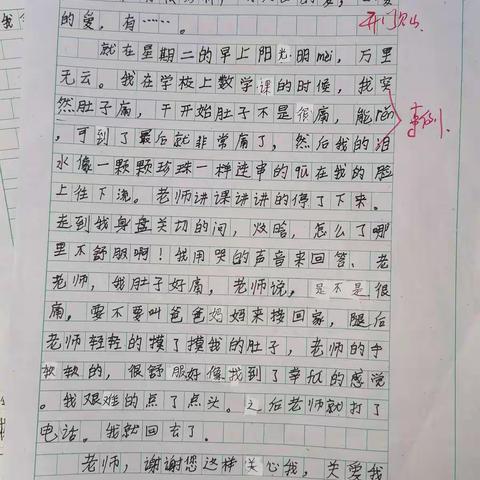 的爱，有……。
开门见山
就在星期二的早上阳光明mèi，万里
无云。我在学校上数学课的时候，我突
然肚子痛，干开始肚子不是很痛，能忍
事例
，可到了最后就非常痛了，然后我的泪
水像一颗颗珍珠一样连串的 在我的脸
上往下流。老师讲课讲讲的停了下来。
走到我身盘关切的问， ，怎么了哪
里不舒服啊！我用哭的声音来回答、老
老师，我肚子好痛，老师说，是不是很
痛，要不要叫爸爸妈妈来接回家，随后
老师轻轻的摸了摸我的肚子，老师的手
软软的，很舒服好像找到了 的感觉
。我艰难的点了点头。之后老师就打了
电话。我就回去了。
老师，谢谢您这样关心我，关爱我